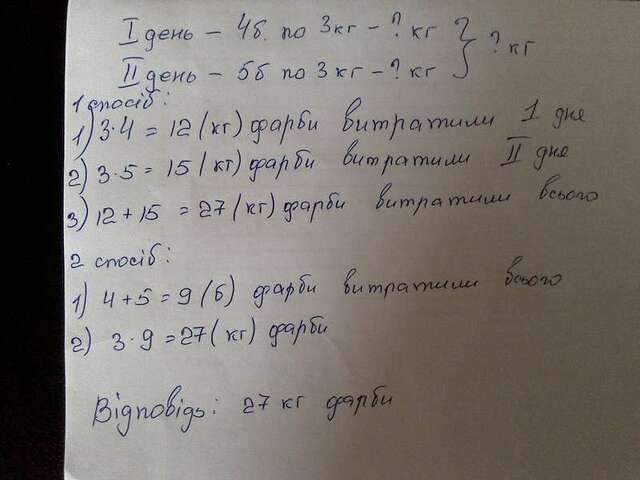 I день – 4б. по 3кг – ? кг } ? кг
II день – 5б по 3 кг – ? кг
1 спосіб:
1) 3·4 = 12 (кг) фарби витратили I дня
2) 3·5 = 15 (кг) фарби витратили II дня
3) 12 + 15 = 27 (кг) фарби витратили всього
2 спосіб:
1) 4 + 5 = 9 (б) фарби витратили всього
2) 3·9 = 27 (кг) фарби
Відповідь: 27 кг фарби